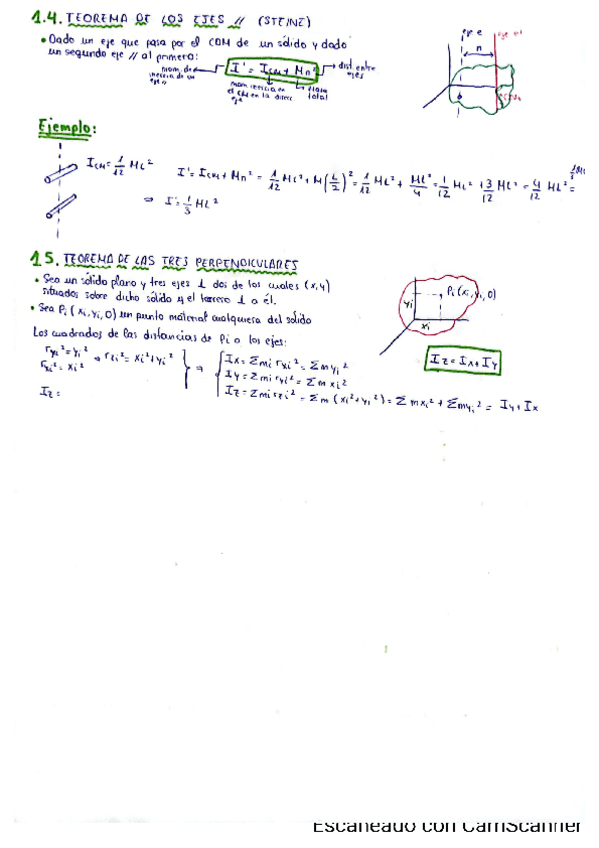 1.4. TEOREMA DE LOS EJES // (STEINE)
• Dado un eje que pasa por el CDM de un sólido y dado
un segundo eje // al primero:
I' = I_CM + Mn²
mom. de inercia de un eje //
mom. inercia en el CM en la direc eje
masa total
dist. entre ejes
eje e
n
Ejemplo:
I_CM = 1/12 ML²
I' = I_CM + Mn² = 1/12 ML² + M(L/2)² = 1/12 ML² + ML²/4 = 1/12 ML² + 3/12 ML² = 4/12 ML² =
⇒ I' = 1/3 ML²
1.5. TEOREMA DE LAS TRES PERPENDICULARES
• Sea un sólido plano y tres ejes ⊥ dos de los cuales (x,y)
situados sobre dicho sólido y el tercero ⊥ a él.
• Sea Pi (xi, yi, 0) un punto material cualquiera del sólido
Los cuadrados de las distancias de Pi a los ejes:
Pi (xi, yi, 0)
yi
xi
Iz = Ix + Iy
r_yi² = yi²
r_xi² = xi²
⇒ r_zi² = xi² + yi²
⇒ Ix = Σmi r_xi² = Σm yi²
Iy = Σmi r_yi² = Σm xi²
Iz = Σmi r_zi² = Σm (xi² + yi²) = Σm xi² + Σm yi² = Iy + Ix
Iz =
Escaneado con CamScanner